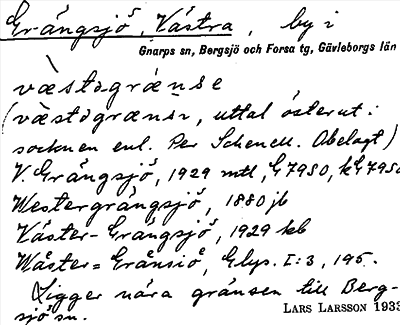 Grängsjö, Västra, by i
Gnarps sn, Bergsjö och Forsa tg, Gävleborgs län
västogränse
(västogränsi, uttal österut i
socknen enl. Per Schenell. Obelagt)
V. Grängsjö, 1929 mtl, G 7950, kG 7950
Westergrängsjö, 1880 jb
Väster-Grängsjö, 1929 kb
Wäster=Grånsiö, Glys. I:3, 195.
Ligger nära gränsen till Berg-
sjö sn.
LARS LARSSON 1933